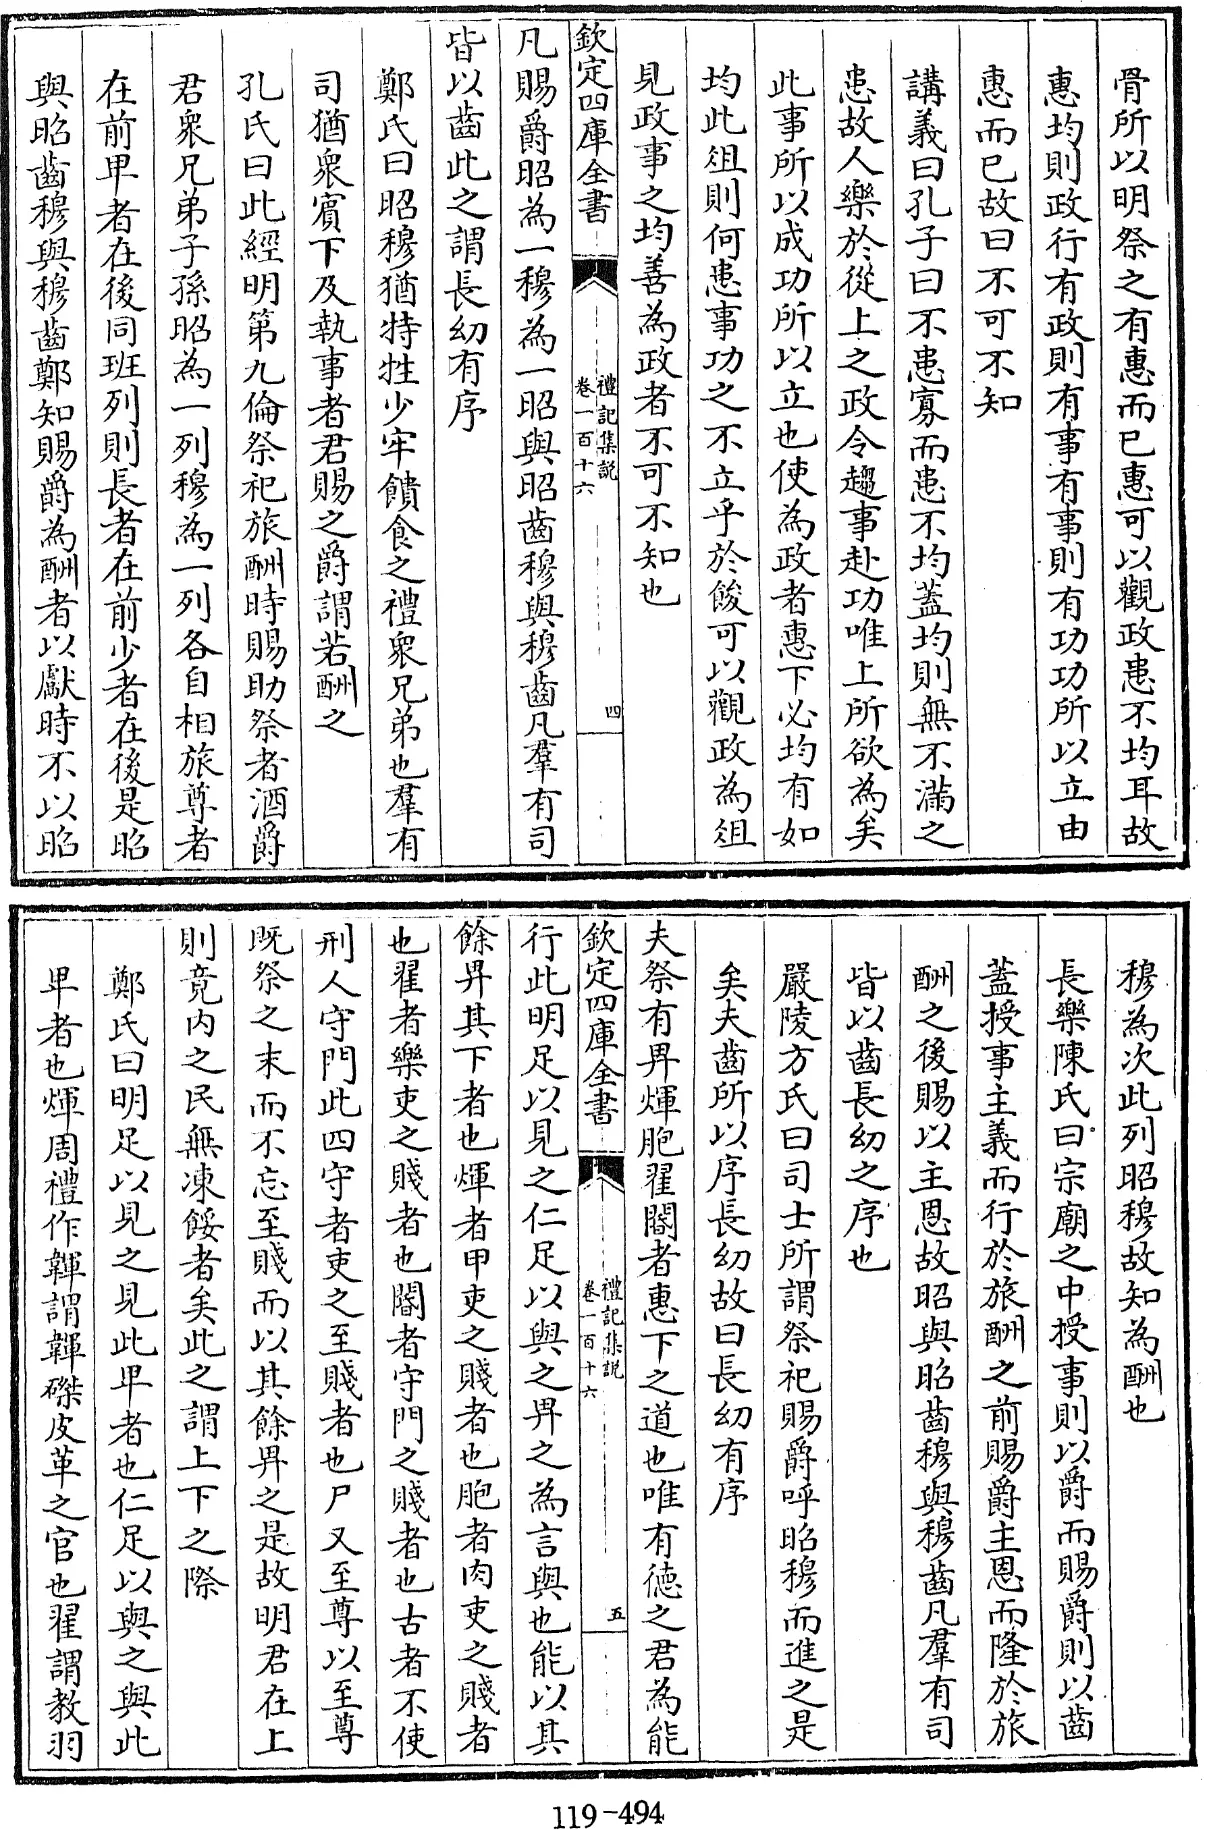 骨所以明祭之有惠而已惠可以觀政患不均耳故
惠均則政行有政則有事有事則有功功所以立由
惠而已故曰不可不知
講義曰孔子曰不患寡而患不均蓋均則無不滿之
患故人樂於從上之政令趨事赴功唯上所欲為矣
此事所以成功所以立也使為政者惠下必均有如
均此俎則何患事功之不立乎於餕可以觀政為俎
見政事之均善為政者不可不知也
欽定四庫全書
禮記集說
卷一百十六
四
凡賜爵昭為一穆為一昭與昭齒穆與穆齒凡羣有司
皆以齒此之謂長幼有序
鄭氏曰昭穆猶特牲少牢饋食之禮衆兄弟也羣有
司猶衆賔下及執事者君賜之爵謂若酬之
孔氏曰此經明第九倫祭祀旅酬時賜助祭者酒爵
君衆兄弟子孫昭為一列穆為一列各自相旅尊者
在前卑者在後同班列則長者在前少者在後是昭
與昭齒穆與穆齒鄭知賜爵為酬者以獻時不以昭
穆為次此列昭穆故知為酬也
長樂陳氏曰宗廟之中授事則以爵而賜爵則以齒
蓋授事主義而行於旅酬之前賜爵主恩而隆於旅
酬之後賜以主恩故昭與昭齒穆與穆齒凡羣有司
皆以齒長幼之序也
嚴陵方氏曰司士所謂祭祀賜爵呼昭穆而進之是
矣夫齒所以序長幼故曰長幼有序
夫祭有畀煇胞翟閽者惠下之道也唯有徳之君為能
欽定四庫全書
禮記集說
卷一百十六
五
行此明足以見之仁足以與之畀之為言與也能以其
餘畀其下者也煇者甲吏之賤者也胞者肉吏之賤者
也翟者樂吏之賤者也閽者守門之賤者也古者不使
刑人守門此四守者吏之至賤者也尸又至尊以至尊
既祭之末而不忘至賤而以其餘畀之是故明君在上
則竟内之民無凍餒者矣此之謂上下之際
鄭氏曰明足以見之見此卑者也仁足以與之與此
卑者也煇周禮作韗謂韗磔皮革之官也翟謂教羽
119-494